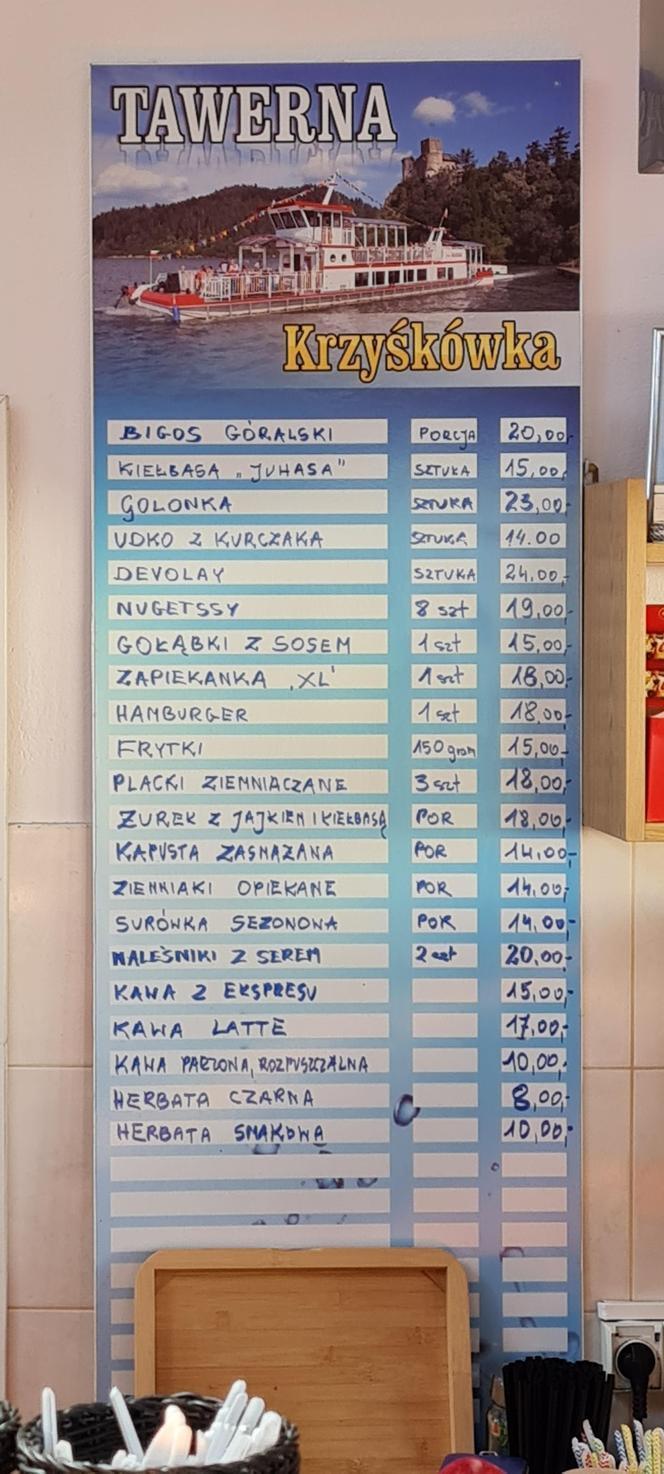 TAWERNA
Krzyśkówka
BIGOS GÓRALSKI PORCJA 20,00,-
KIEŁBASA „JUHASA" SZTUKA 15,00,
GOLONKA SZTUKA 23,00,
UDKO Z KURCZAKA SZTUKA 14.00
DEVOLAY SZTUKA 24,00,-
NUGETSSY 8 szt 19,00,-
GOŁĄBKI Z SOSEM 1 szt 15,00,-
ZAPIEKANKA ,XL' 1 szt 18,00,-
HAMBURGER 1 szt 18,00,-
FRYTKI 150 gram 15,00,-
PLACKI ZIEMNIACZANE 3 szt 18,00,-
ŻUREK Z JAJKIEM I KIEŁBASĄ POR 18,00,-
KAPUSTA ZASMAŻANA POR 14,00,-
ZIEMNIAKI OPIEKANE POR 14,00,-
SURÓWKA SEZONOWA POR 14,00,-
NALEŚNIKI Z SEREM 2 szt 20,00,-
KAWA Z EKSPRESU 15,00,-
KAWA LATTE 17,00,-
KAWA PARZONA, ROZPUSZCZALNA 10,00,-
HERBATA CZARNA 8,00,-
HERBATA SMAKOWA 10,00,-